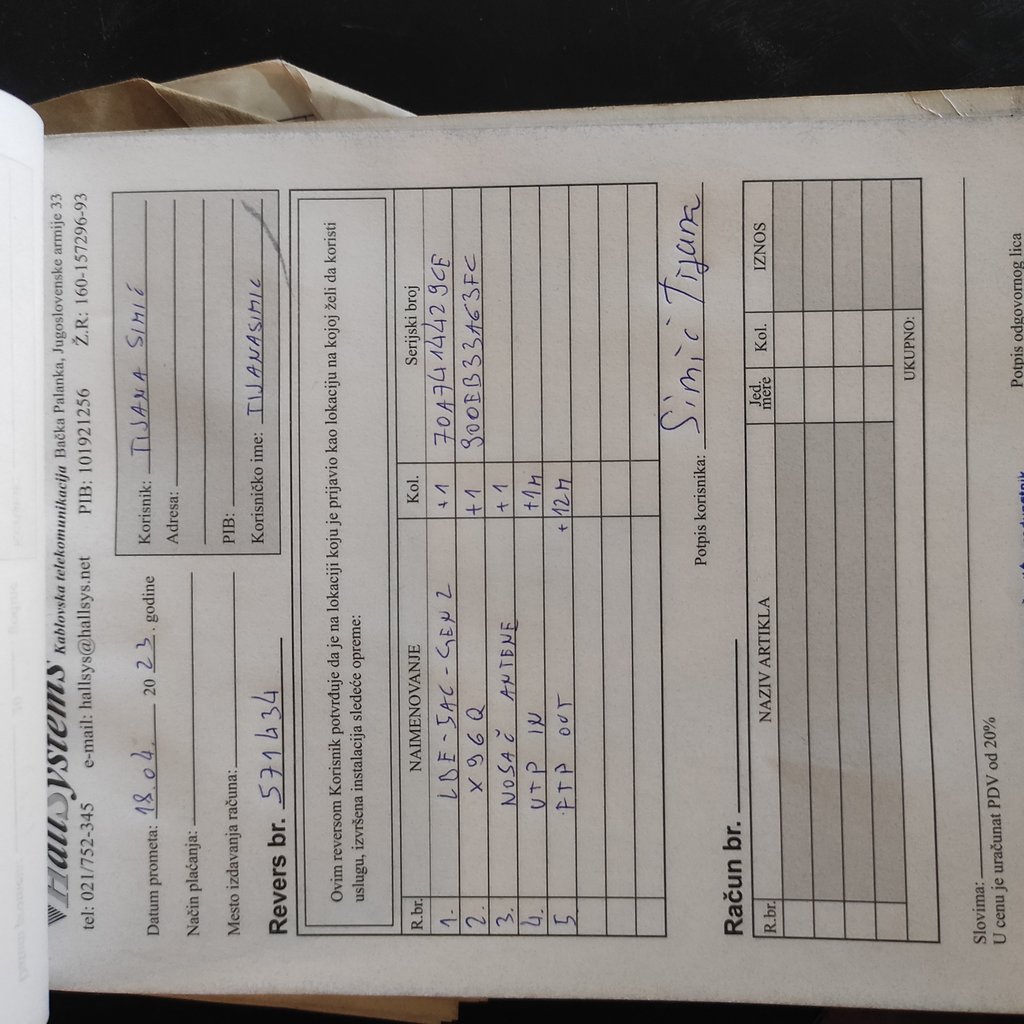 HallSystems Kablovska telekomunikacija Bačka Palanka, Jugoslovenske armije 33
tel: 021/752-345 e-mail: hallsys@hallsys.net PIB: 101921256 Ž.R: 160-157296-93
Datum prometa: 18.04. 2023. godine
Način plaćanja:
Mesto izdavanja računa:
Korisnik: TIJANA SIMIĆ
Adresa:
PIB:
Korisničko ime: TIJANASIMIC
Revers br. 571434
Ovim reversom Korisnik potvrđuje da je na lokaciji koju je prijavio kao lokaciju na kojoj želi da koristi
uslugu, izvršena instalacija sledeće opreme:
R.br. NAIMENOVANJE Kol. Serijski broj
1. LBE-5AC-GEN2 +1 70A7414429CE
2. X96Q +1 900EB33A63FC
3. NOSAČ ANTENE +1
4. UTP IN +1M
5. FTP OUT +12M
Potpis korisnika: Simić Tijana
Račun br.
R.br. NAZIV ARTIKLA Jed. mere Kol. IZNOS
UKUPNO:
Slovima:
U cenu je uračunat PDV od 20%
Potpis odgovornog lica